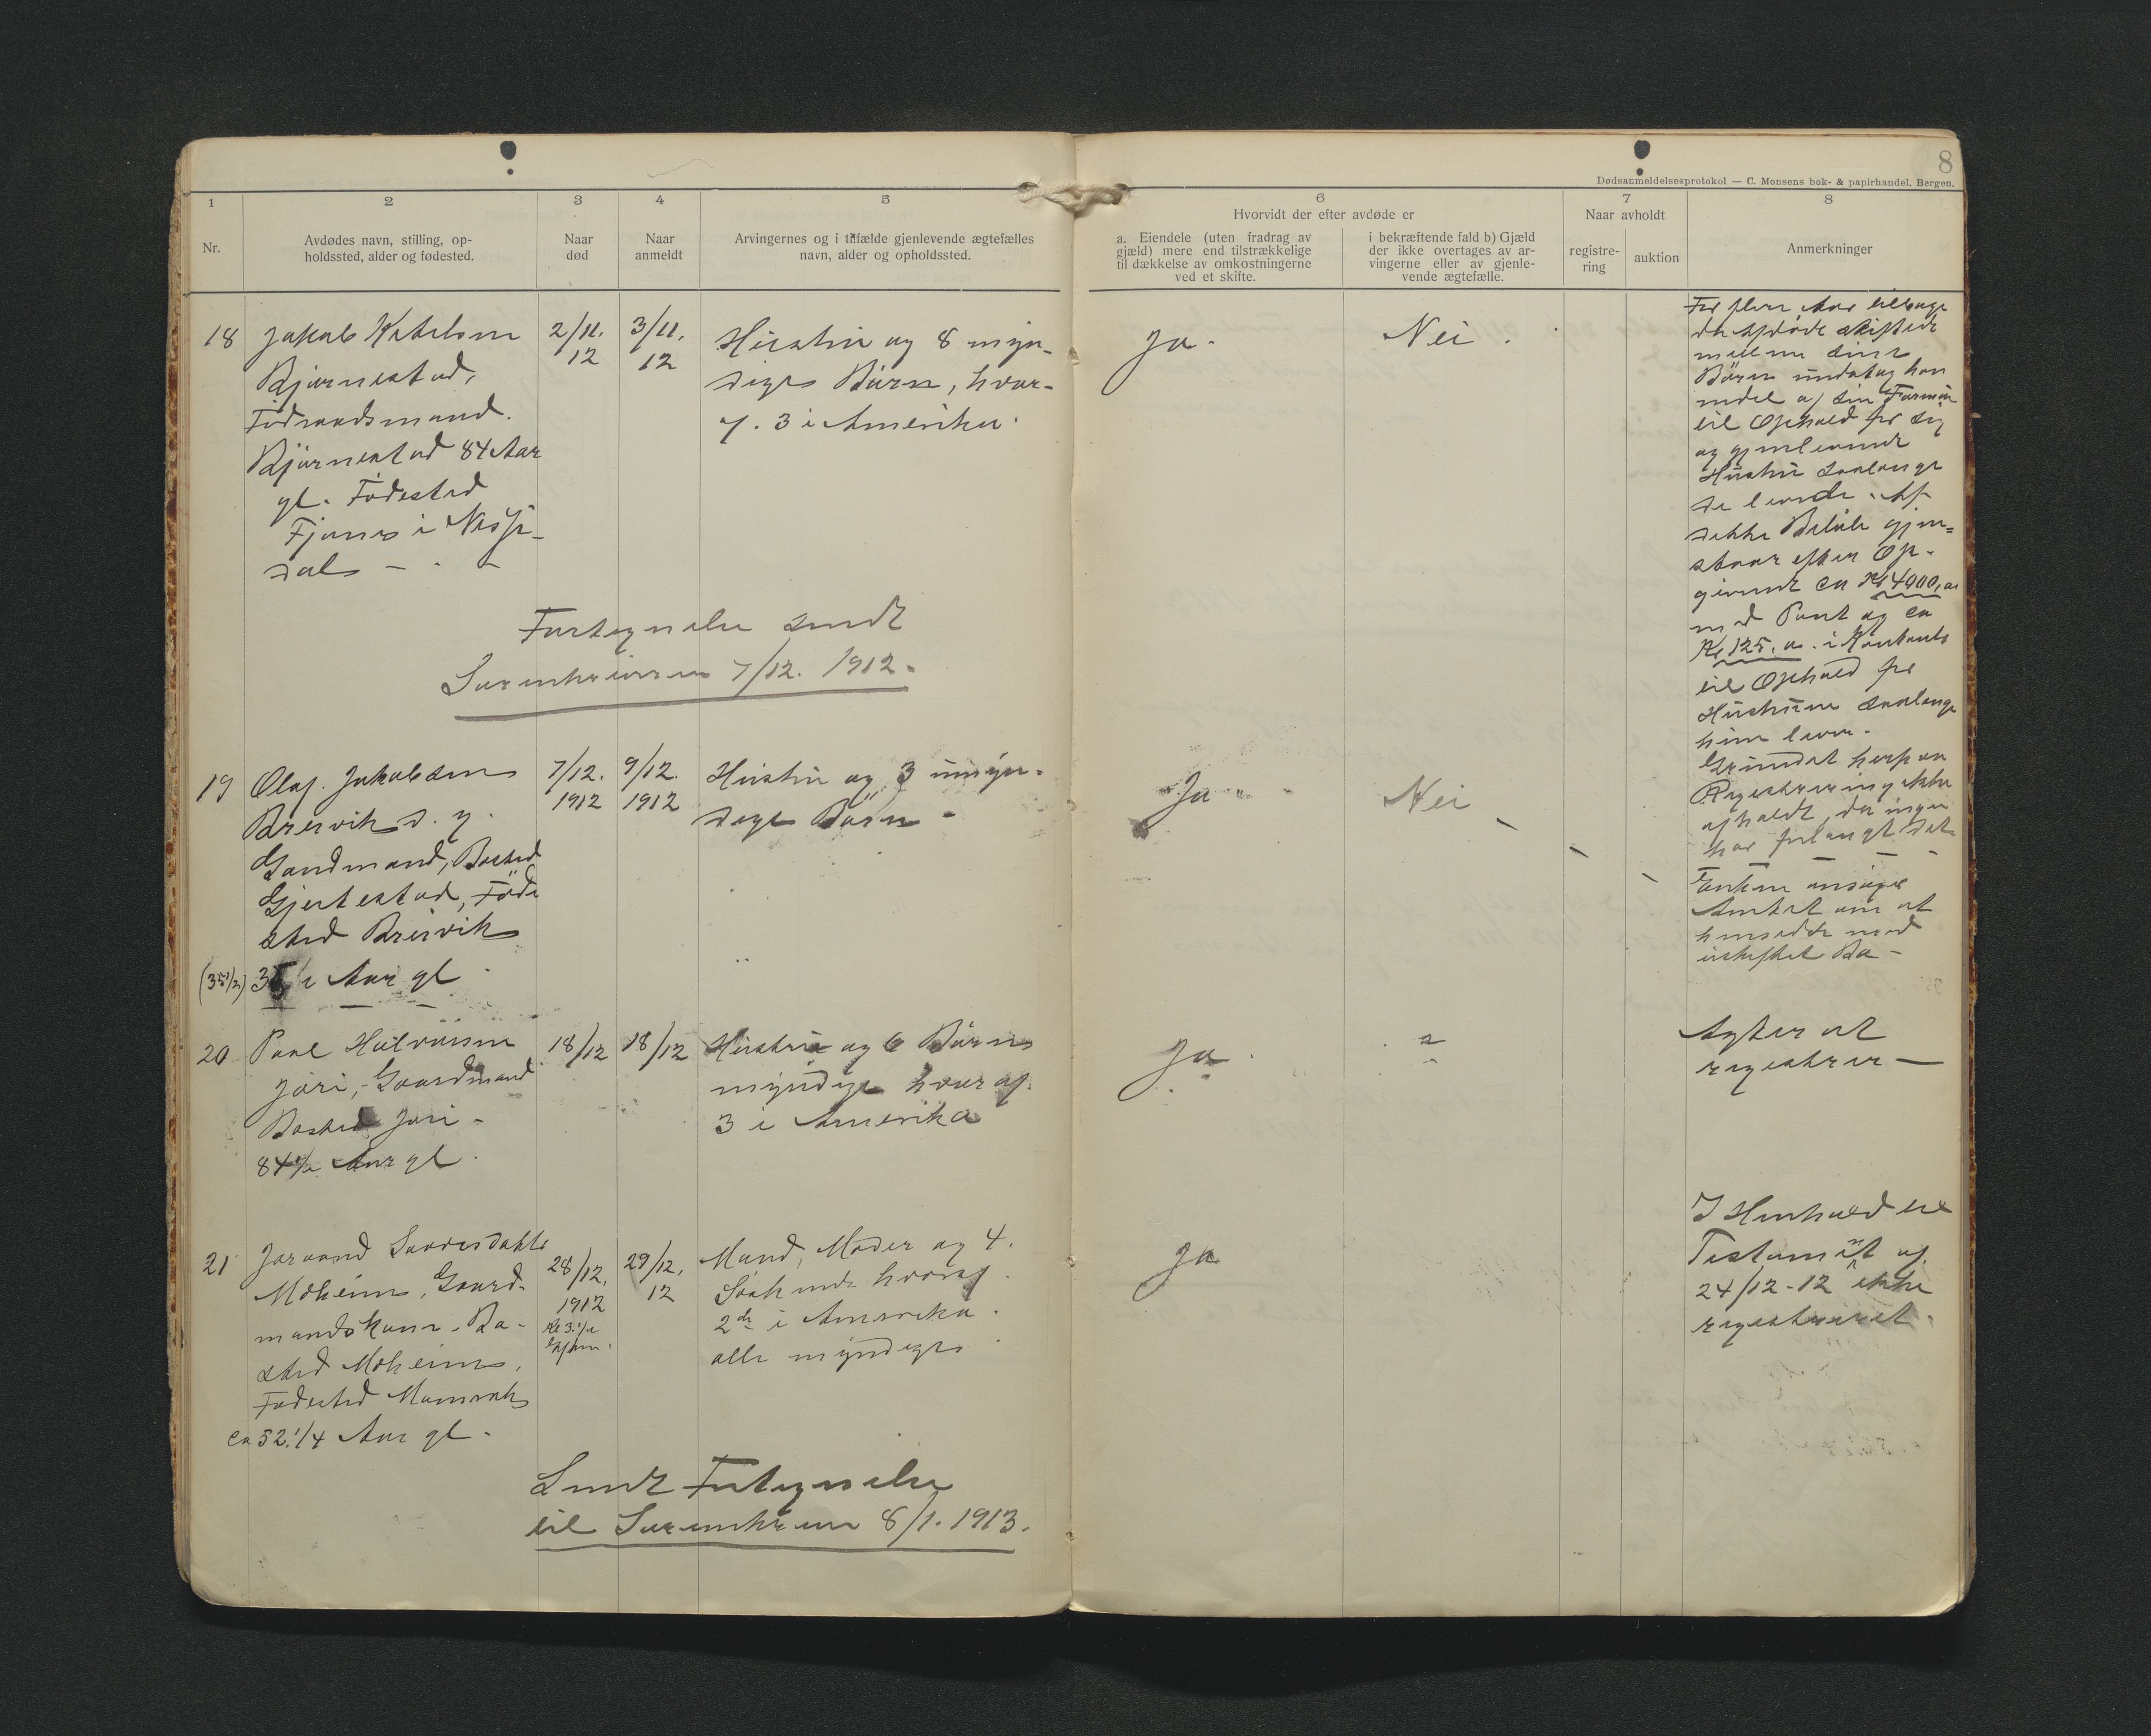 8
Dødsanmeldelsesprotokol — C. Monsens bok- & papirhandel, Bergen.
1
2
3
4
5
6
7
8
Nr.
Avdødes navn, stilling, op-
holdssted, alder og fødested.
Naar
død
Naar
anmeldt
Arvingernes og i tilfælde gjenlevende ægtefælles
navn, alder og opholdssted.
Hvorvidt der efter avdøde er
a. Eiendele (uten fradrag av
gjæld) mere end tilstrækkelige
til dækkelse av omkostningerne
ved et skifte.
i bekræftende fald b) Gjæld
der ikke overtages av ar-
vingerne eller av gjenle-
vende ægtefælle.
Naar avholdt
registre-
ring
auktion
Anmerkninger
18
Jakob Ketelsen
Bjørnestad,
Föderaadsmand.
Bjørnestad 84 Aar
gl. Födested
i
dal
2/11.
12
3/11.
12
Hustru og 8 myn-
dige Börn, hvor-
af. 3 i Amerika.
Ja.
Nei.
For flere Aar tilbage
da Afdöde skiftede
mellem sine
Börn undtog han
endel af sin Formue
til Ophold for sig
og gjenlevende
Hustru saalænge
de levede. Af
dette Belöb gjen=
staar efter Op-
givende ca Kr 4000,00
med Pant og ca
Kr 125.00. i Kontanter
til Ophold for
Hustruen saalænge
hun lever.
Grundet herpaa
Registrering ikke
afholdt, da ingen
har forlangt det
Fortegnelse sendt
Sorenskriveren 7/12. 1912.
19
Olaf. Jakobsen
Breivik d. y.
Gaardmand, Bosted
Gjertestad, Föde
sted Breivik
(35 1/2) 35 1/2 Aar gl.
7/12.
1912
9/12.
1912
Hustru og 3 umyn-
dige Börn -
Ja
Nei
Enken ansöger
Amtet om at
hensidde med
uskiftet Bo -
20
Paul Halvorsen
Jöri, Gaardmand
Bosted Jöri -
84 1/2 Aar gl.
18/12
18/12
Hustru og 6 Börn
myndige hvoraf
3 i Amerika
Ja
Agter at
registrere —
21
Moheim, Gaard-
mandskone. Bo-
sted Moheim,
Födested
ca 52 1/4 Aar gl -
28/12,
1912
Kl 3 1/2
Efterm.
29/12,
12
Mand, Moder og 4.
Söskende hvoraf
2de i Amerika.
alle myndige
Ja
I Henhold til
Testament af
24/12-12 ikke
registreret.
Sendt Fortegnelse
til Sorenskriveren 8/1. 1913.